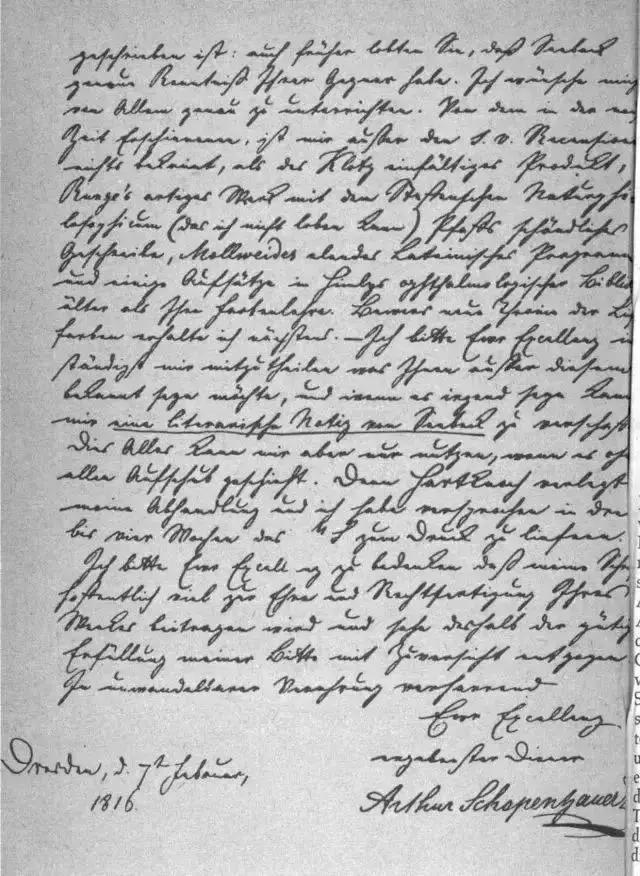 geschrieben ist: auch früher lobten Sie, daß Seebeck
genaue Kenntniß Ihrer Gegner habe. Ich wünsche mich
von Allem genau zu unterrichten. Von dem in der
Zeit Erschienenen, ist mir außer den s. v. Recensionen
nichts bekannt, als des Klotz einfältiges Produkt,
Runge's artiges Werk mit dem Steffenschen
(das ich nicht loben kann) Pfaffs schändliches
Geschreibe, Mollweides elendes Lateinisches Programm
und einige Aufsätze in Himlys ophthalmologischer
älter als Ihre Farbenlehre. neue Theorie der
farben erhalte ich nächstens. – Ich bitte Eure Excellenz
ständigst mir mitzutheilen was Ihnen außer diesem
bekannt seyn möchte, und wenn es irgend seyn kann
mir eine literarische Notiz von Seebeck zu
Dies Alles kann mir aber nur nutzen, wenn es
allen Aufschub geschieht. Denn Hartknoch verlegt
meine Abhandlung und ich habe versprochen in drei
bis vier Wochen das zum Druck zu liefern.
Ich bitte Eure zu bedenken daß meine
hoffentlich viel zur Ehre und Rechtfertigung Ihres
Werkes beitragen wird und sehe deshalb der
Erfüllung meiner Bitte mit Zuversicht entgegen
In unwandelbarer Verehrung verharrend
Eure Excellenz
ergebenster Diener
Dresden, d. 7t Februar,
1816.
Arthur Schopenhauer